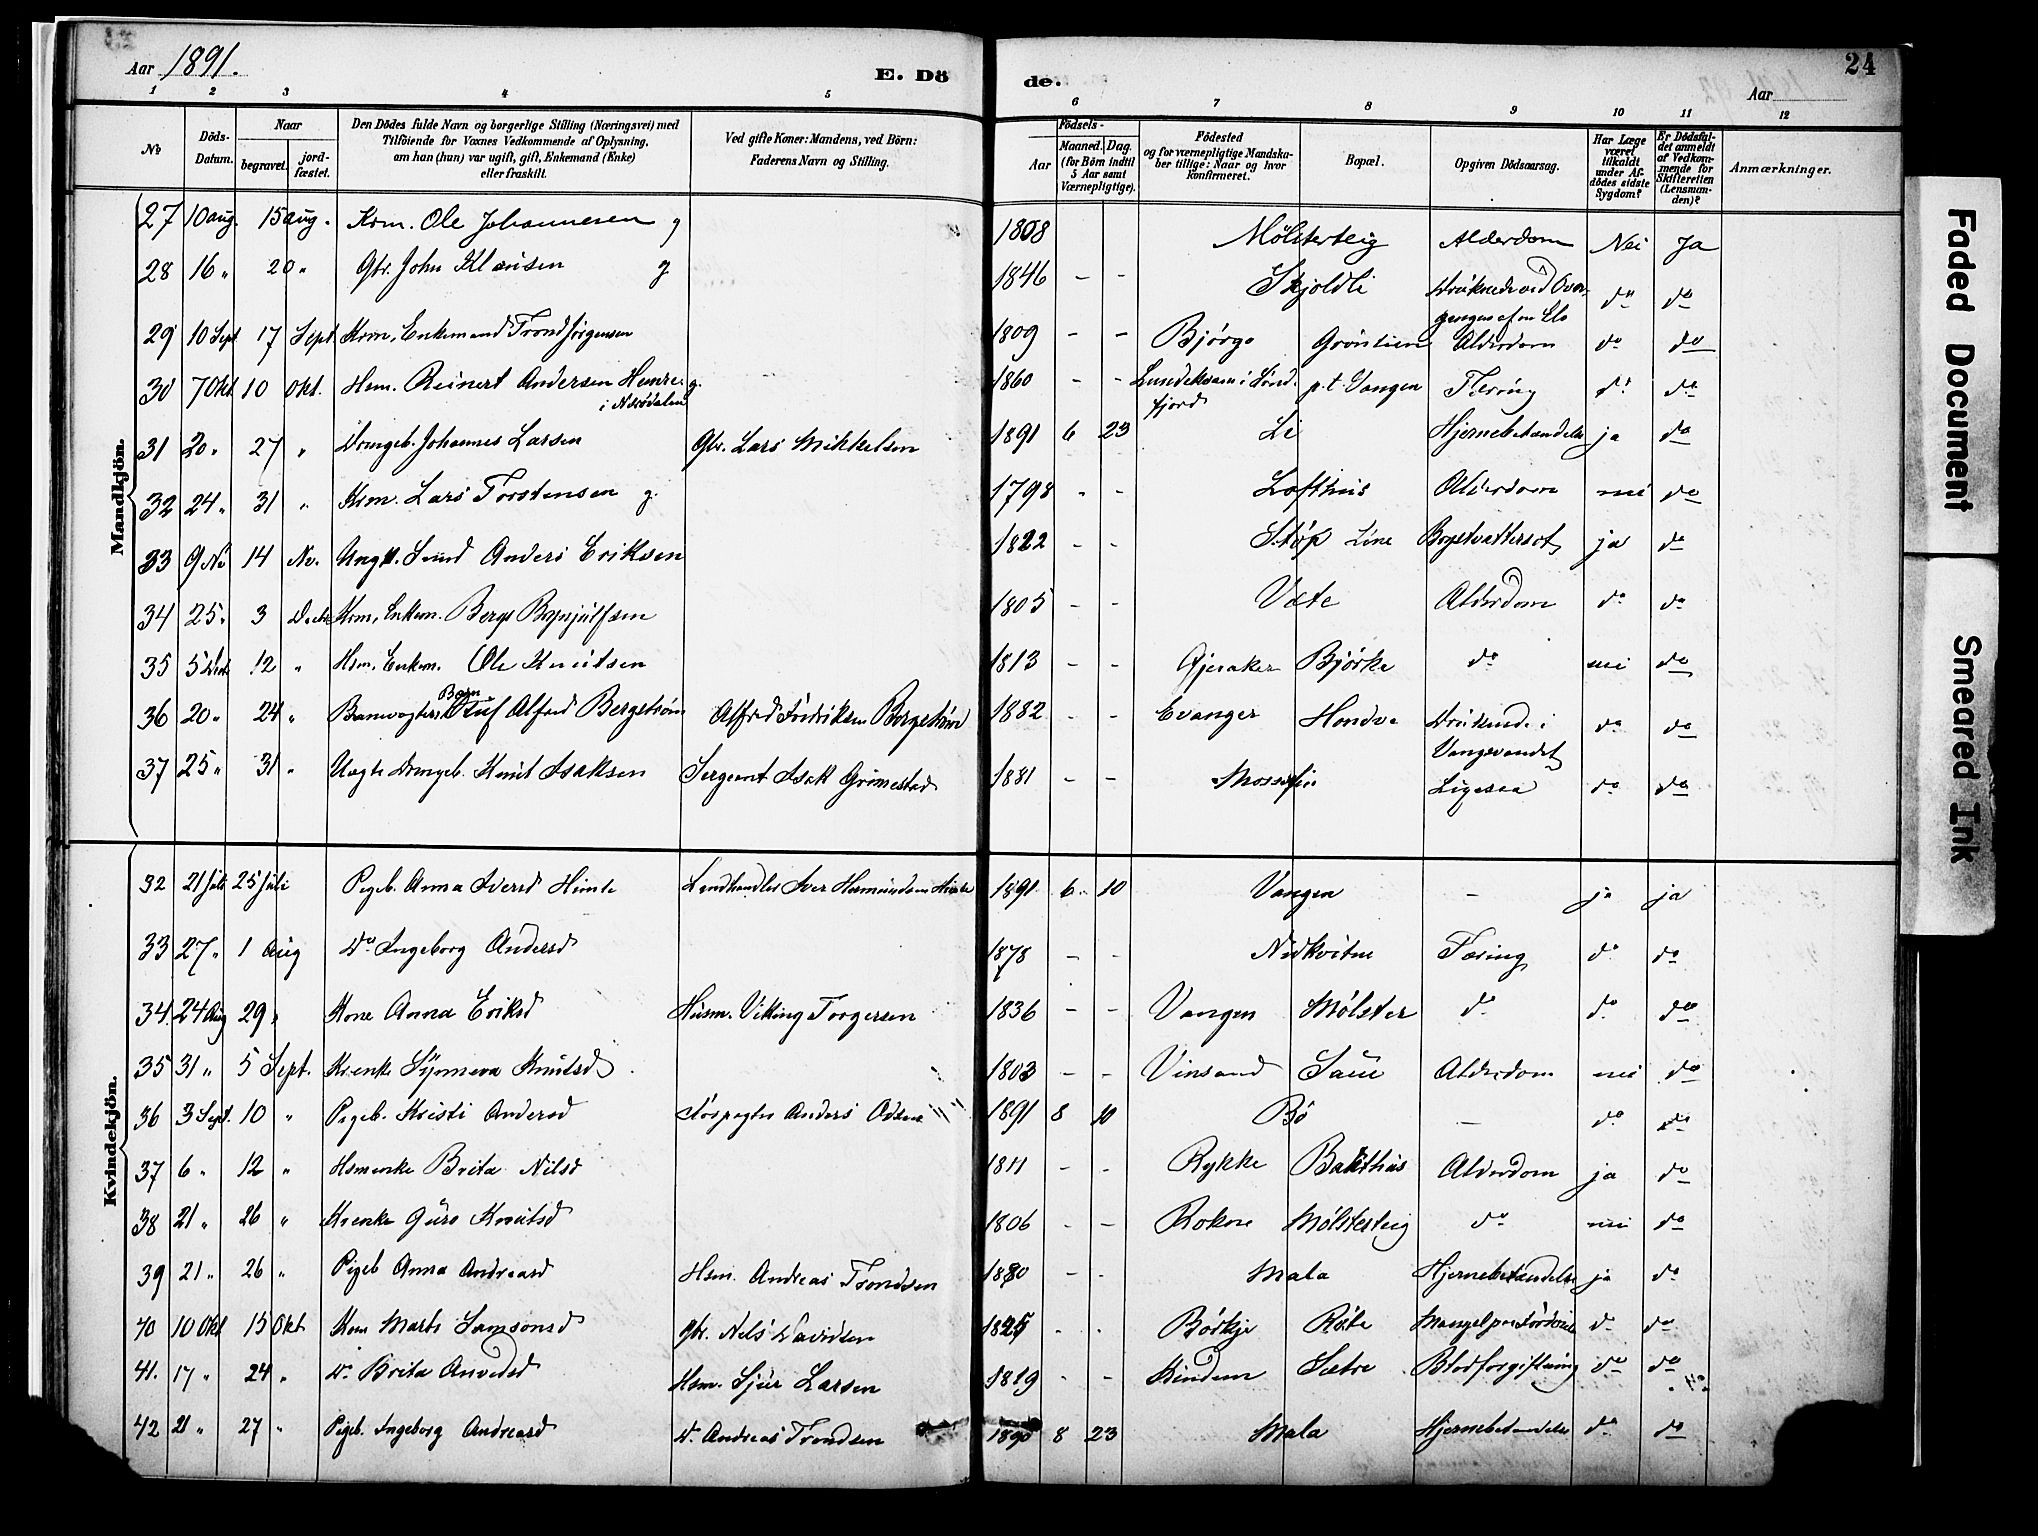 Aar 1891.
E. Dö
de.
24
Aar
1 2 3 4 5 6 7 8 9 10 11 12
No
Döds-Datum.
Naar
begravet.
jord-fæstet.
Den Dödes fulde Navn og borgerlige Stilling (Næringsvei) med
Tilföiende for Voxnes Vedkommende af Oplysning,
om han (hun) var ugift, gift, Enkemand (Enke)
eller fraskilt.
Ved gifte Koner: Mandens, ved Börn:
Faderens Navn og Stilling.
Födsels-
Aar
Maaned. Dag.
(for Börn indtil
5 Aar samt
Værnepligtige).
Födested
og for værnepligtige Mandska-
ber tillige: Naar og hvor
konfirmeret.
Bopæl.
Opgiven Dödsaarsag.
Har Læge
været
tilkaldt
under Af-
dödes sidste
Sygdom?
Er Dödsfal-
det anmeldt
af Vedkom-
mende for
Skifteretten
(Lensman-
den)?
Anmærkninger.
Mandkjön.
27 10 aug. 15 aug. Krm. Ole Johannesen g 1808 Mölsterteig Alderdom Nei Ja
28 16 " 20 " Gbr. John Klausen g 1846 - - Skjoldli Druknede ved Over-
gangen af en Elv do do
29 10 Sept 17 Sept Krm. Enkemand Trond Jörgensen 1809 - - Björgo Alderdom do do
30 7 Okt 10 Okt. Hsm. Reinert Andersen Henre g.
i Nærödalen 1860 - - i Sönd-
fjord p.t. Vangen Tæring do do
31 20 " 27 " Drengeb. Johannes Larsen Gbr. Lars Mikkelsen 1891 6 23 Li Hjernebetændelse ja do
32 24 " 31 " Krm. Lars Torstensen g. 1798 - - Lofthus Alderdom nei do
33 9 No 14 No. Anders Eriksen 1822 - - Line Brystvattersot ja do
34 25 " 3 Decbr Krm. Enkem. Brynjulfsen 1805 - - Væte Alderdom do do
35 5 Decb 12 " Hsm. Enkem. Ole Knutsen 1813 - - Gjeraker Björke do nei do
36 20 " 24 " Barn Oluf Alfred Bergström Alfred Fredriksen Bergström 1882 - - Evanger Hondve Druknede i
Vangsvandet do do
37 25 " 31 " Uægte Drengeb. Knut Isaksen Sergeant Isak Grimestad 1881 - - Ligesaa do do
Kvindekjön.
32 21 Juli 25 Juli Pigeb. Anna Iversd Himle Landhandler Iver Hermundsen Himle 1891 6 10 Vangen - ja ja
33 27 " 1 Aug Do Ingeborg Andersd 1878 - - Nedkvitne Tæring do do
34. 24 Aug 29 " Kone Anna Eriksd Husm. Viking Torgersen 1836 - - Vangen Mölster do do do
35 31 " 5 Sept. Krenke Synneva Knutsd 1803 - - Vinsand Saue Alderdom nei do
36 3 Sept. 10 " Pigeb. Kristi Andersd Forpagter Anders Odsen 1891 8 10 Bö - do do
37 6 " 12 " Hsmenke Brita Nilsd 1811 - - Rykke Bakethus Alderdom ja do
38 21 " 26 " Krenke Guro Knutsd 1806 - - Rokne Mölsterteig do nei do
39 21 " 26 " Pigeb Anna Andreasd Hsm. Andreas Trondsen 1880 - - Mala Hjernebetændelse ja do
40 10 Okt 15 Okt Kone Marta Samsonsd Gbr. Nels Davidsen 1825 - - Börkje Röte do do
41. 17 " 24 " Do Brita Anvedsd Hsm. Sjur Larsen 1819 - - Kindem Sætre Blodforgiftning do do
42 21 " 27 " Pigeb. Ingeborg Andreasd Do Andreas Trondsen 1890 8 23 Mala Hjernebetændelse do do
Faded Document
Smeared Ink